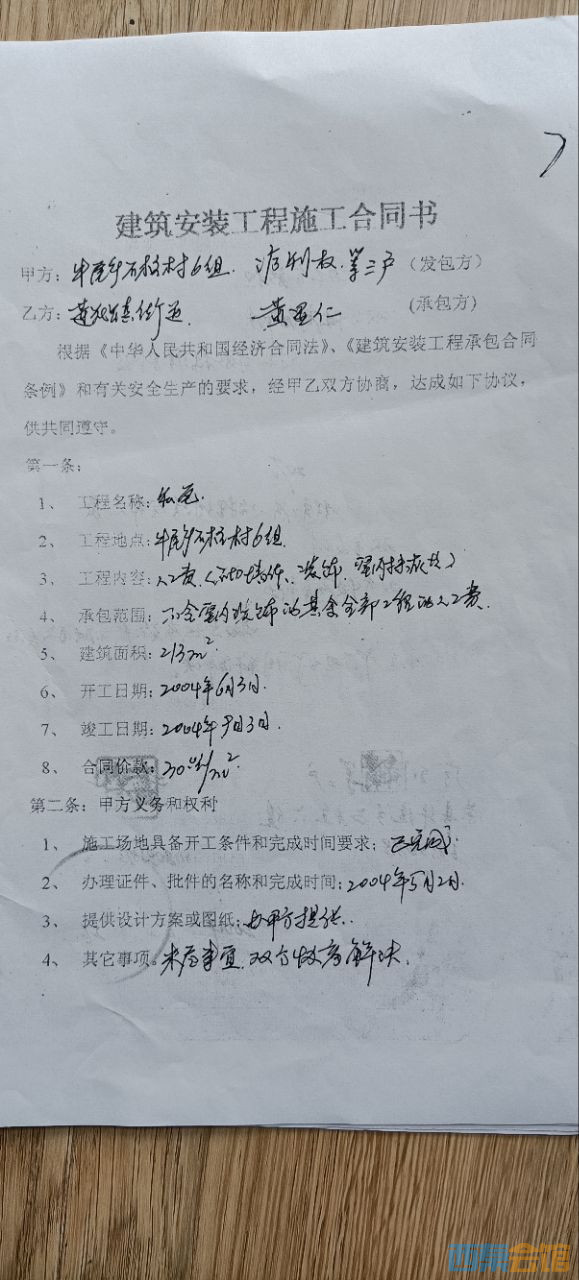 建筑安装工程施工合同书
甲方：石柱村6组. 权. 第三户（发包方）
乙方：镇街道. 黄 仁 (承包方)
根据《中华人民共和国经济合同法》、《建筑安装工程承包合同
条例》和有关安全生产的要求，经甲乙双方协商，达成如下协议，
供共同遵守。
第一条：
1、 工程名称：私宅.
2、 工程地点：石柱村6组.
3、 工程内容：人工费
4、 承包范围：不含室内装饰的其余全部工程的人工费.
5、 建筑面积：213m².
6、 开工日期：2004年6月3日.
7、 竣工日期：2004年9月3日.
8、 合同价款：30元/m².
第二条：甲方义务和权利
1、 施工场地具备开工条件和完成时间要求：已完成.
2、 办理证件、批件的名称和完成时间：2004年5月2日.
3、 提供设计方案或图纸：由甲方提供.
4、 其它事项。未尽事宜.双方协商解决.
西泵会馆